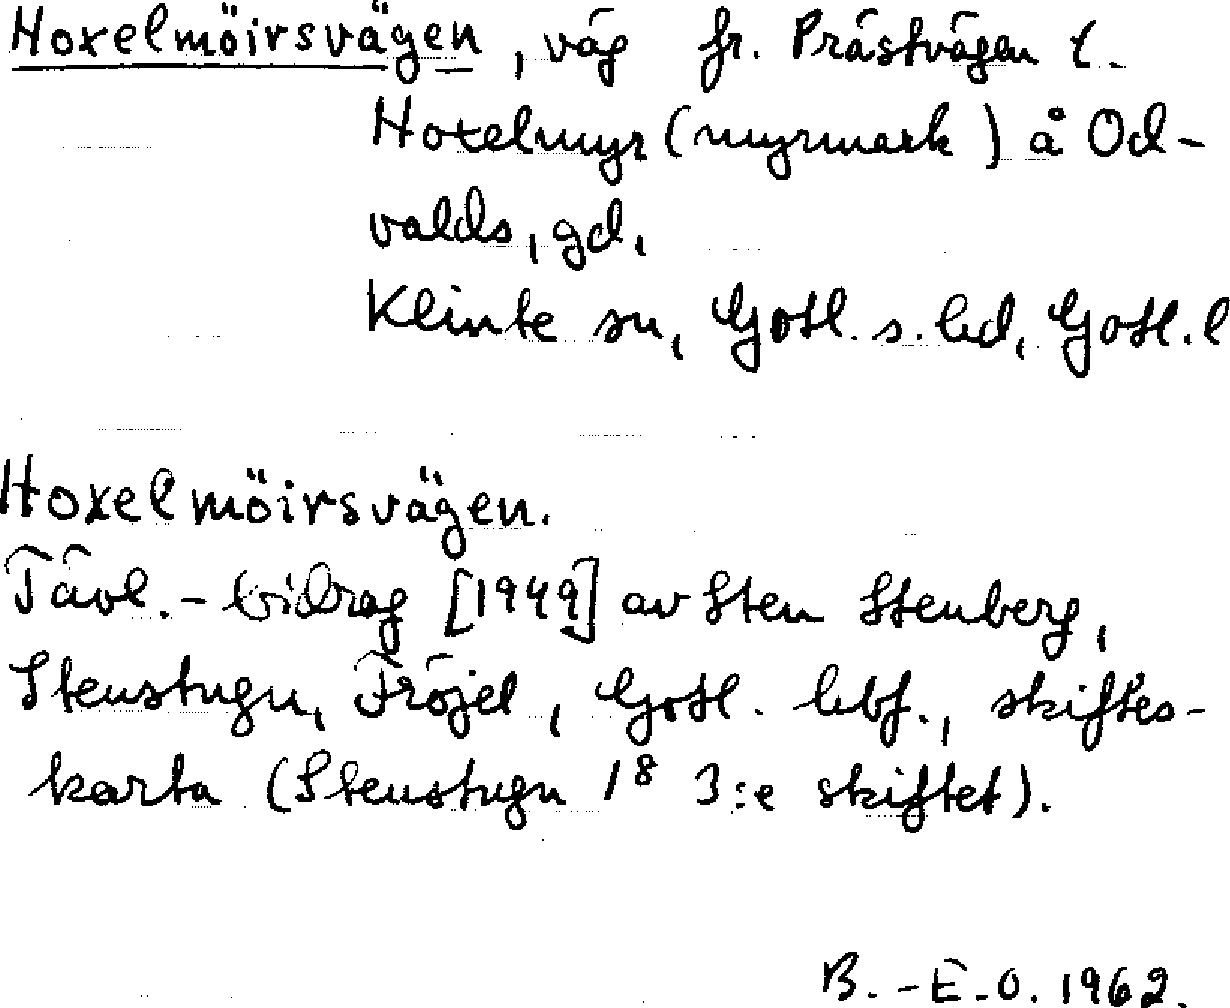 Hoxelmöirsvägen, väg fr. Prästvägen t.
Hoxelmyr (myrmark) å Od-
valds, gd,
Klinte sn, Gotl. s. hd, Gotl. l
Hoxelmöirsvägen.
Tävl.-bidrag [1949] av Sten Stenberg,
Stenstugu, Fröjel, Gotl. hbf., skiftes-
karta (Stenstugu 1⁸ 3:e skiftet).
B.-E.O. 1962.